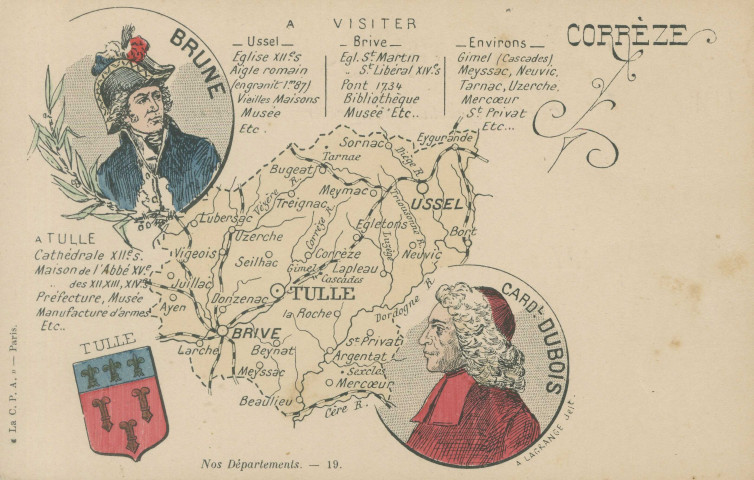 A VISITER
CORRÈZE
BRUNE
Ussel
Eglise XIIe.s
Aigle romain
(en granit 1m87)
Vieilles Maisons
Musée
Etc.
Brive
Egl. St Martin
" St Libéral XIVe.s
Pont 1734
Bibliothèque
Musée Etc..
Environs
Gimel (Cascades)
Meyssac, Neuvic,
Tarnac, Uzerche,
Mercœur
St Privat
Etc...
Sornac
Tarnac
Eygurande
Diège R.
Bugeat
Meymac
USSEL
Vézère R.
Treignac
Triouzonne R.
Lubersac
Uzerche
Corrèze R.
Egletons
Luzège
Bort
Vigeois
Seilhac
Corrèze
Neuvic
Gimel
Cascades
Lapleau
Juillac
Donzenac
TULLE
Dordogne R.
Ayen
la Roche
BRIVE
St Privat
Larche
Beynat
Argentat
Meyssac
Sexcles
Mercœur
Beaulieu
Cère R.
A TULLE
Cathédrale XIIe s.
Maison de l'Abbé XVe.
" des XII, XIII, XIVs
Préfecture, Musée
Manufacture d'armes
Etc..
TULLE
CARDL. DUBOIS
A LAGRANGE delt.
« La C. P. A. » — Paris.
Nos Départements. — 19.